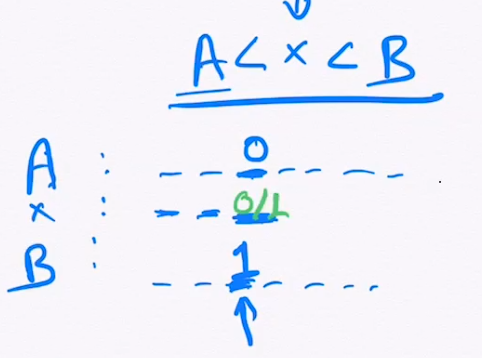 A < x < B
A : _ _ 0 _ _ _ _
x : _ _ 0/1
B : _ _ 1 _ _ _ _